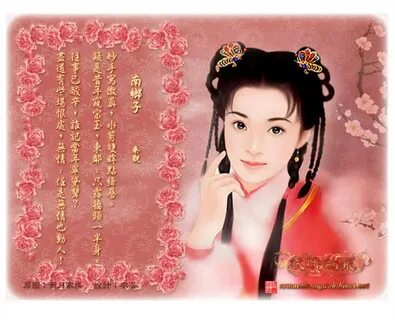 南鄉子
秦觀
妙手寫徽真,水剪雙眸點絳唇。
疑是昔年窺宋玉,東鄰,只露牆頭一半身。
往事已酸辛,誰記當年翠黛顰?
盡道有些堪恨處,無情,任是無情也動人!
原圖:新月家族 設計: